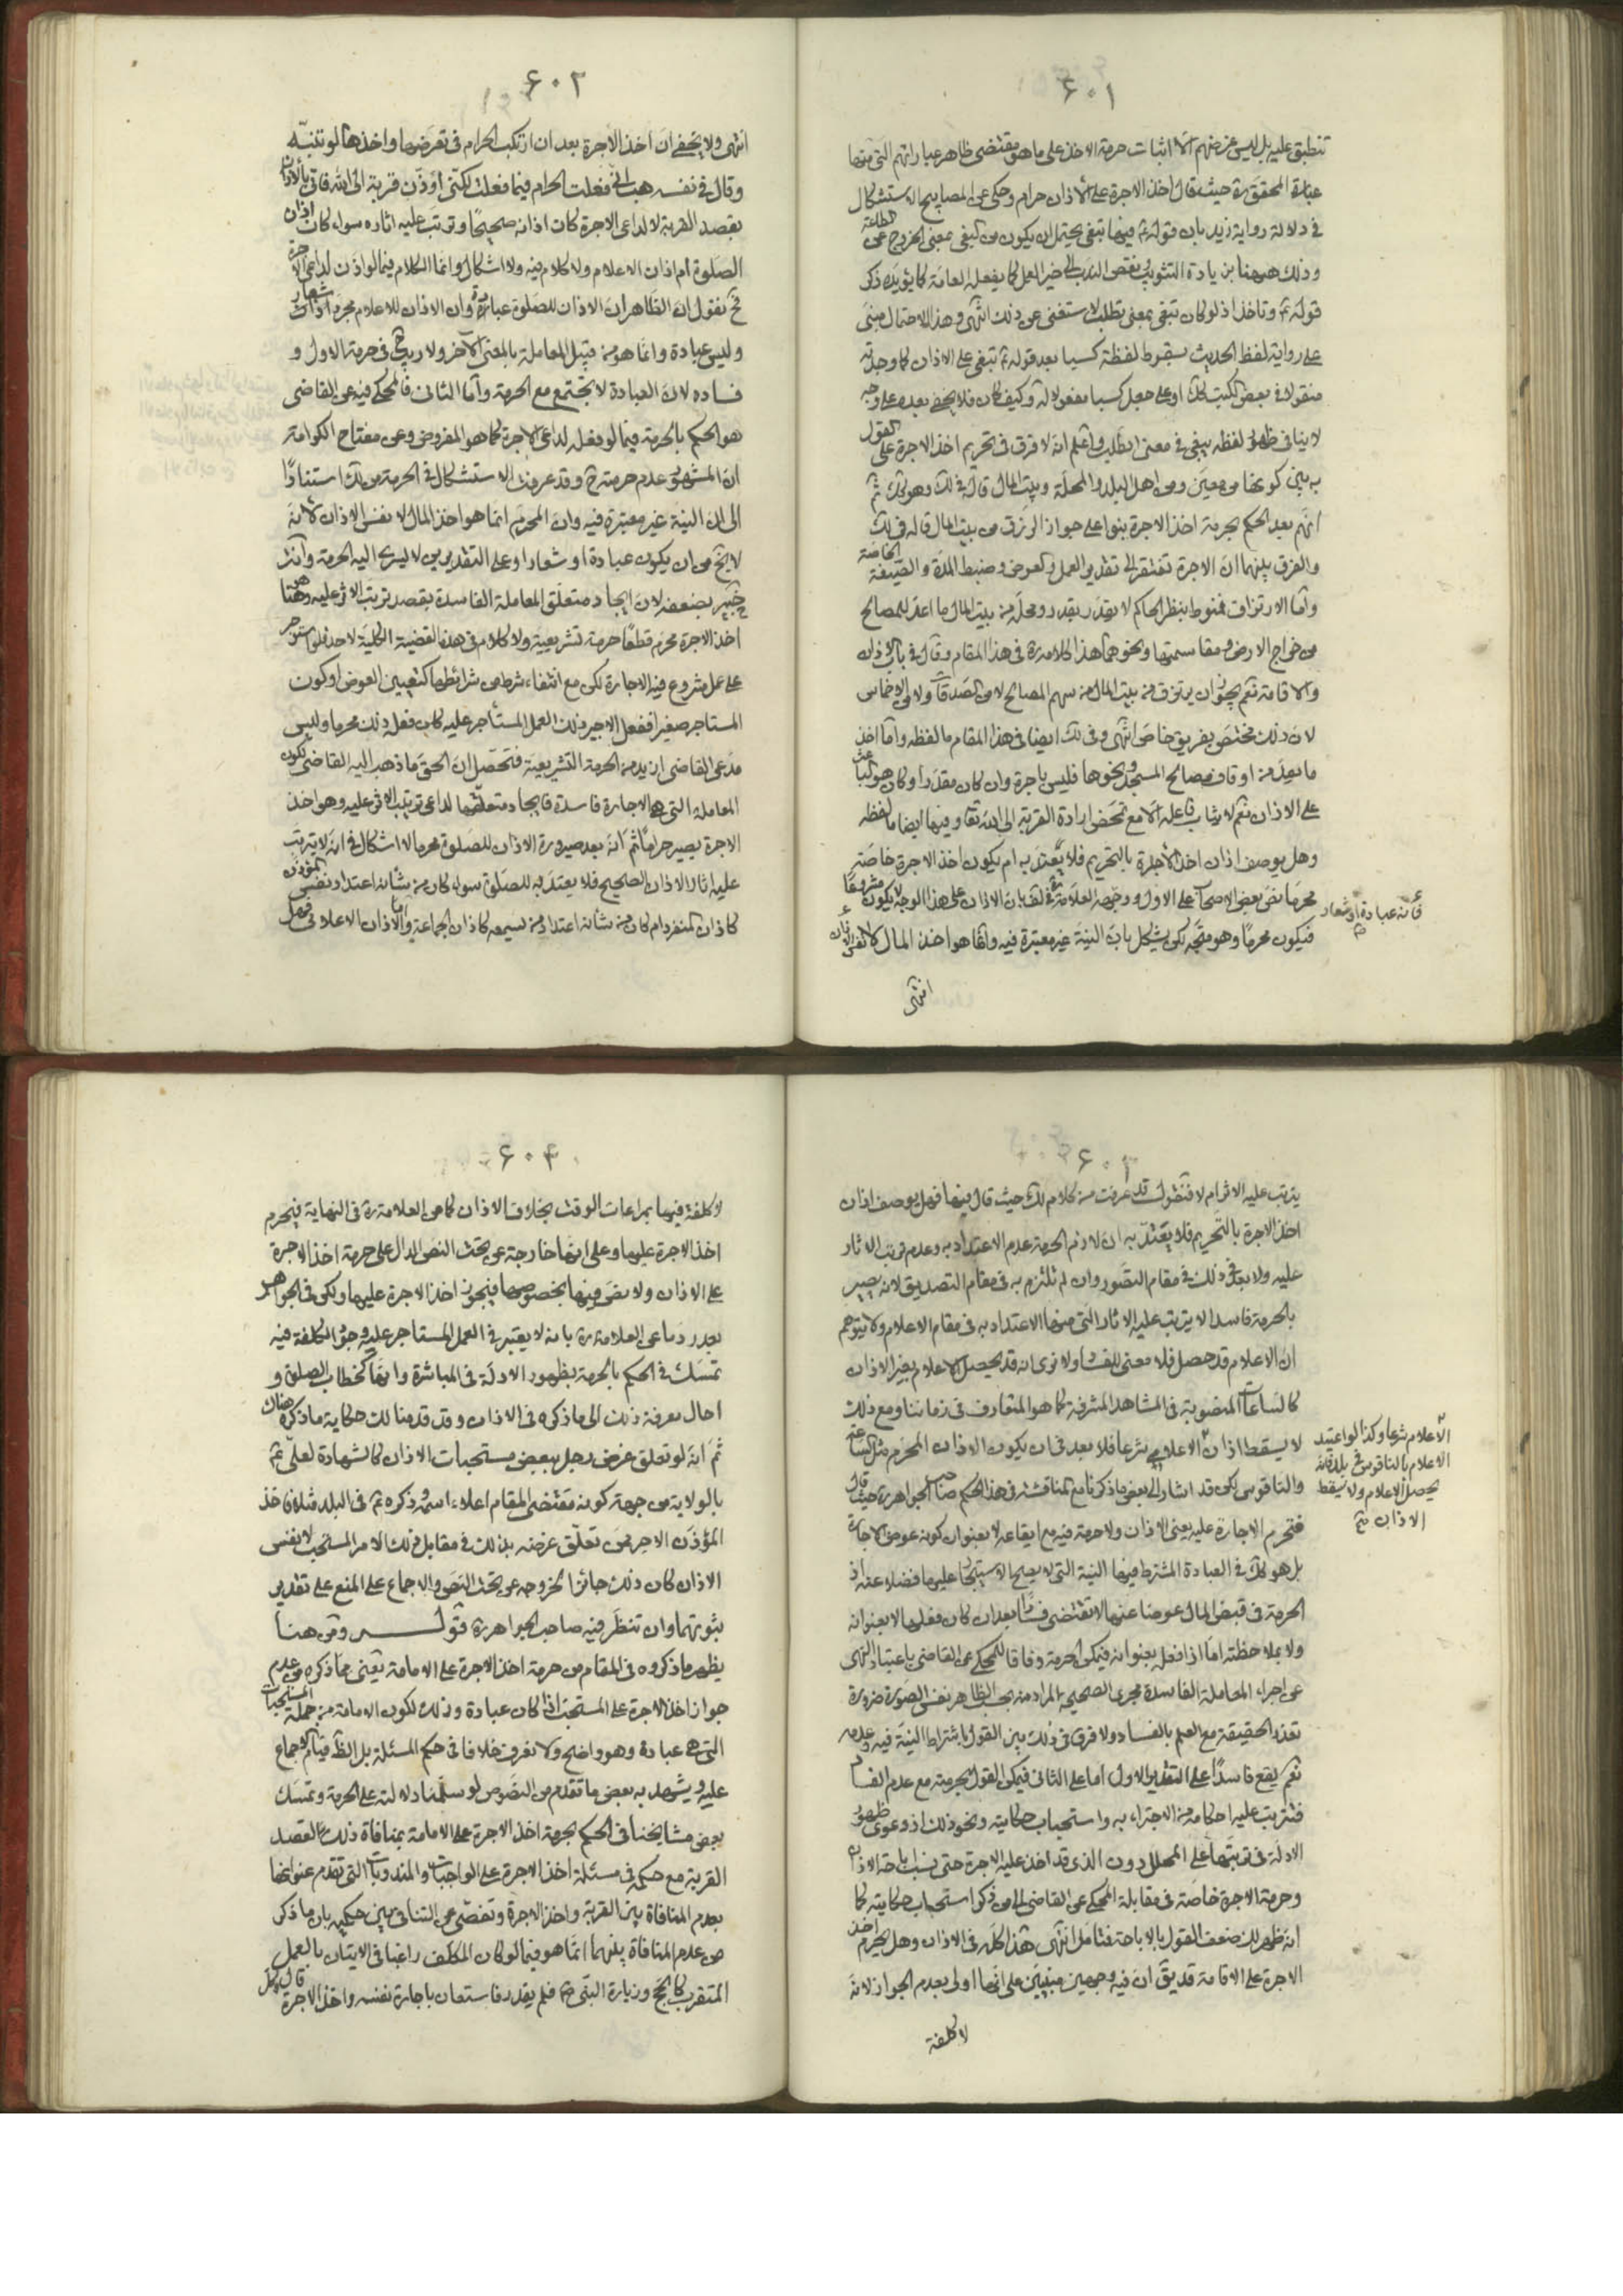 ٦٠١
تنطبق عليه بل ليس غرضهم الا اثبات حرمة الاخذ على ما هو مقتضى ظاهر عباراتهم التي منها
عبارة المحقق ره حيث قال اخذ الاجرة على الاذان حرام وحكى عن المصابيح الاستشكال
في دلالة رواية زيد بان قوله ع فيها تبتغي يحتمل ان يكون من البغي بمعنى الخروج عن الطاعة
وذلك ههنا بزيادة التثويب ونقص الندب الى خير العمل كما يفعله العامة كما يؤيده ذكر
قوله ع وتاخذ اذ لو كان تبتغي بمعنى تطلب لاستغنى عن ذلك انتهى وهذا الاحتمال مبني
على رواية لفظ الحديث بسقوط لفظة كسبا بعد قوله ع تبتغي على الاذان كما وجدته
منقولا في بعض الكتب كك او على جعل كسبا مفعولا له وكيف كان فلا يخفى بعده على وجه
لا ينافي ظهور لفظه يبتغي في معنى الطلب واعلم انه لا فرق في تحريم اخذ الاجرة على القول
به بين كونها من معين ومن اهل البلد والمحلة وبيت المال قاله في لك وهو كك ثم
انهم بعد الحكم بحرمة اخذ الاجرة بنوا على جواز الرزق من بيت المال قاله في لك
والفرق بينهما ان الاجرة تفتقر الى تقدير العمل والعوض وضبط المدة والصيغة الخاصة
واما الارتزاق فمنوط بنظر الحاكم لا يقدر بقدر ومحله من بيت المال ما اعد للمصالح
من خراج الارض ومقاسمتها ونحوهما هذا كلامه ره في هذا المقام وقال في باب الاذان
والاقامة نعم يجوز ان يرتزق من بيت المال من سهم المصالح لا من الصدقات ولا من الاخماس
لان ذلك مختص بفريق خاص انتهى وفي لك ايضا في هذا المقام ما لفظه واما اخذ
ما يعد من اوقاف مصالح المسجد ونحوها فليس باجرة وان كان مقدرا وكان هو الباعث
على الاذان نعم لا يثاب فاعله الا مع تمحض ارادة القربة الى الله تعالى وفيها ايضا ما لفظه
وهل يوصف اذان اخذ الاجرة بالتحريم فلا يعتد به ام يكون اخذ الاجرة خاصة
محرما نص بعض الاصحاب على الاول ووجهه العلامة في لف بان الاذان على هذا الوجه لا يكون مشروعا
فيكون محرما وهو متجه لكن يشكل بان النية غير معتبرة فيه وانما هو اخذ المال لا نفس الاذان
فانه عبادة او شعار
انتهى
٦٠٢
انتهى ولا يخفى ان اخذ الاجرة بعد ان ارتكب الحرام في تعرضها واخذها لو تنبه
وقال في نفسه هب اني فعلت الحرام فيما فعلت لكني اؤذن قربة الى الله فاتى بالاذان
بقصد القربة لا لداعي الاجرة كان اذانه صحيحا وترتب عليه اثاره سواء كان اذان
الصلوة ام اذان الاعلام ولا كلام فيه ولا اشكال وانما الكلام فيما لو اذن لداعي الاجرة
فح نقول ان الظاهر ان الاذان للصلوة عبادة وان الاذان للاعلام مجرد اذان شعار
وليس عبادة وانما هو من قبيل المعاملة بالمعنى الاخر ولا ريب ح في حرمة الاول و
فساده لان العبادة لا تجتمع مع الحرمة واما الثاني فالمحكي فيه عن القاضي
هو الحكم بالحرمة فيما لو فعله لداعي الاجرة كما هو المفروض وعن مفتاح الكرامة
ان المشهور عدم حرمته ح وقد عرفت الاستشكال في الحرمة من لك استنادا
الى ان النية غير معتبرة فيه وان المحرم انما هو اخذ المال لا نفس الاذان لانه
لا يخ من ان يكون عبادة او شعارا وعلى التقديرين لا ليسري اليه الحرمة وانت
خبير بضعفه لان ايجاد متعلق المعاملة الفاسدة بقصد ترتب الاثر عليه وهو هنا
اخذ الاجرة محرم قطعا حرمة تشريعية ولا كلام في هذه القضية الكلية لاحد فلو استوجر
على عمل مشروع فيه الاجارة لكن مع انتفاء شرط من شرائطها كتعيين العوض او كون
المستاجر صغيرا ففعل الاجير ذلك العمل المستأجر عليه كان فعله ذلك محرما وليس
مدعى القاضي ازيد من الحرمة التشريعية فتحصل ان الحق ما ذهب اليه القاضي لكون
المعاملة التي هي الاجارة فاسدة فايجاد متعلقها لداعي ترتب الاثر عليه وهو اخذ
الاجرة يصير حراما ثم انه بعد صيرورة الاذان للصلوة محرما لا اشكال في انه لا يترتب
عليه اثار الاذان الصحيح فلا يعتد به للصلوة سواء كان من شانه اعتداد نفس المؤذن
كاذان المنفرد ام كان من شانه اعتداد من يسمعه كاذان الجماعة واما الاذان الاعلامي فهل
٦٠٣
يترتب عليه الاثر ام لا فنقول قد عرفت من كلام لك حيث قال فيها فهل يوصف اذان
اخذ الاجرة بالتحريم فلا يعتد به ان لازم الحرمة عدم الاعتداد به وعدم ترتب الاثار
عليه ولا بعد في ذلك في مقام التصور وان لم نلتزم به في مقام التصديق لانه يصير
بالحرمة فاسدا لا يترتب عليه الاثار التي منها الاعتداد به في مقام الاعلام ولا يتوهم
ان الاعلام قد حصل فلا معنى للفساد اولا نرى انه قد يحصل الاعلام بغير الاذان
كالساعات المنصوبة في المشاهد المشرفة كما هو المتعارف في زماننا ومع ذلك
لا يسقط اذان الاعلامي شرعا فلا بعد في ان يكون الاذان المحرم مثل الساعة
والناقوس لكن قد اشار الى بعض ما ذكرنا مع المناقشة في هذا الحكم صاحب الجواهر ره حيث قال
فتحرم الاجارة عليه يعني الاذان ولا حرمة فيه مع ايقاعه لا بعنوان كونه عوض الاجارة
بل هو كك في العبادة المشترط فيها النية التي لا يصح الاستيجار عليها فضلا عنه اذ
الحرمة في قبض المال عوضا عنها لا تقتضي فسادا بعد ان كان فعلها لا بعنوانه
ولا بملاحظته اما اذا فعله بعنوانه فيمكن الحرمة وفاقا للمحكي عن القاضي باعتبار النهي
عن اجراء المعاملة الفاسدة مجرى الصحيحة المراد منه بحسب الظاهر نفس الصورة ضرورة
تعذر الحقيقة مع العلم بالفساد ولا فرق في ذلك بين القول باشتراط النية فيه وعدمه
نعم يقع فاسدا على التقدير الاول اما على الثاني فيمكن القول بحرمته مع عدم الفساد
فتترتب عليه احكامه من الاجتزاء به واستحباب حكايته ونحو ذلك اذ دعوى ظهور
الادلة في ترتبها على المحلل دون الذي قد اخذ عليه الاجرة حتى ينسب اباحة الاذان
وحرمة الاجرة خاصة في مقابلة المحكي عن القاضي الى من ذكر استحباب حكايته كما
انه ظهر لك ضعف القول بالاباحة فتامل انتهى هذا كله في الاذان وهل يحرم اخذ
الاجرة على الاقامة قد يق ان فيه وجهين مبنيين على انها اولى بعدم الجواز لانه
الاعلام شرعا وكذا لو اعتيد
الاعلام بالناقوس في بلد فانه
يحصل الاعلام ولا يسقط
الاذان صح
لا كلفة
٦٠٤
لا كلفة فيها بمراعات الوقت بخلاف الاذان كما عن العلامة ره في النهاية فيحرم
اخذ الاجرة عليها وعلى انها خارجة عن تحت النص الدال على حرمة اخذ الاجرة
على الاذان ولا نص فيها بخصوصها فيجوز اخذ الاجرة عليها ولكن في الجواهر
بعد رد ما عن العلامة ره بانه لا يعتبر في العمل المستاجر عليه وجود الكلفة فيه
تمسك في الحكم بالحرمة بظهور الادلة في المباشرة وانها كخطاب الصلوة و
احال معرفة ذلك الى ما ذكره في الاذان وقد قدمنا لك حكاية ما ذكره هناك
ثم انه لو تعلق غرض رجل ببعض مستحبات الاذان كالشهادة لعلي ع
بالولاية من جهة كونه مقتضى المقام اعلاء اسمه وذكره ع في البلد مثلا فاخذ
المؤذن الاجر ممن تعلق غرضه بذلك في مقابل ذلك الامر المستحب لا نفس
الاذان كان ذلك جائزا لخروجه عن تحت النص والاجماع على المنع على تقدير
ثبوتهما وان تنظر فيه صاحب الجواهر ره قوله ومن هنا
يظهر ما ذكروه في المقام من حرمة اخذ الاجرة على الامامة يعني مما ذكره من عدم
جواز اخذ الاجرة على المستحب اذا كان عبادة وذلك لكون الامامة من جملة المستحبات
التي هي عبادة وهو واضح ولا نعرف خلافا في حكم المسئلة بل الظ قيام الاجماع
عليه ويشهد به بعض ما تقدم من النصوص لو سلمنا دلالته على الحرمة وتمسك
بعض مشايخنا في الحكم بحرمة اخذ الاجرة على الامامة بمنافاة ذلك لقصد
القربة مع حكمه في مسئلة اخذ الاجرة على الواجبات والمندوبات التي تقدم عنوانها
بعدم المنافاة بين القربة واخذ الاجرة وتفصى عن التنافي بين حكميه بان ما ذكر
من عدم المنافاة بينهما انما هو فيما لو كان المكلف راغبا في الاتيان بالعمل
المتقرب كالحج وزيارة النبي ص فلم يقدر فاستعان باجارة نفسه واخذ الاجرة قال